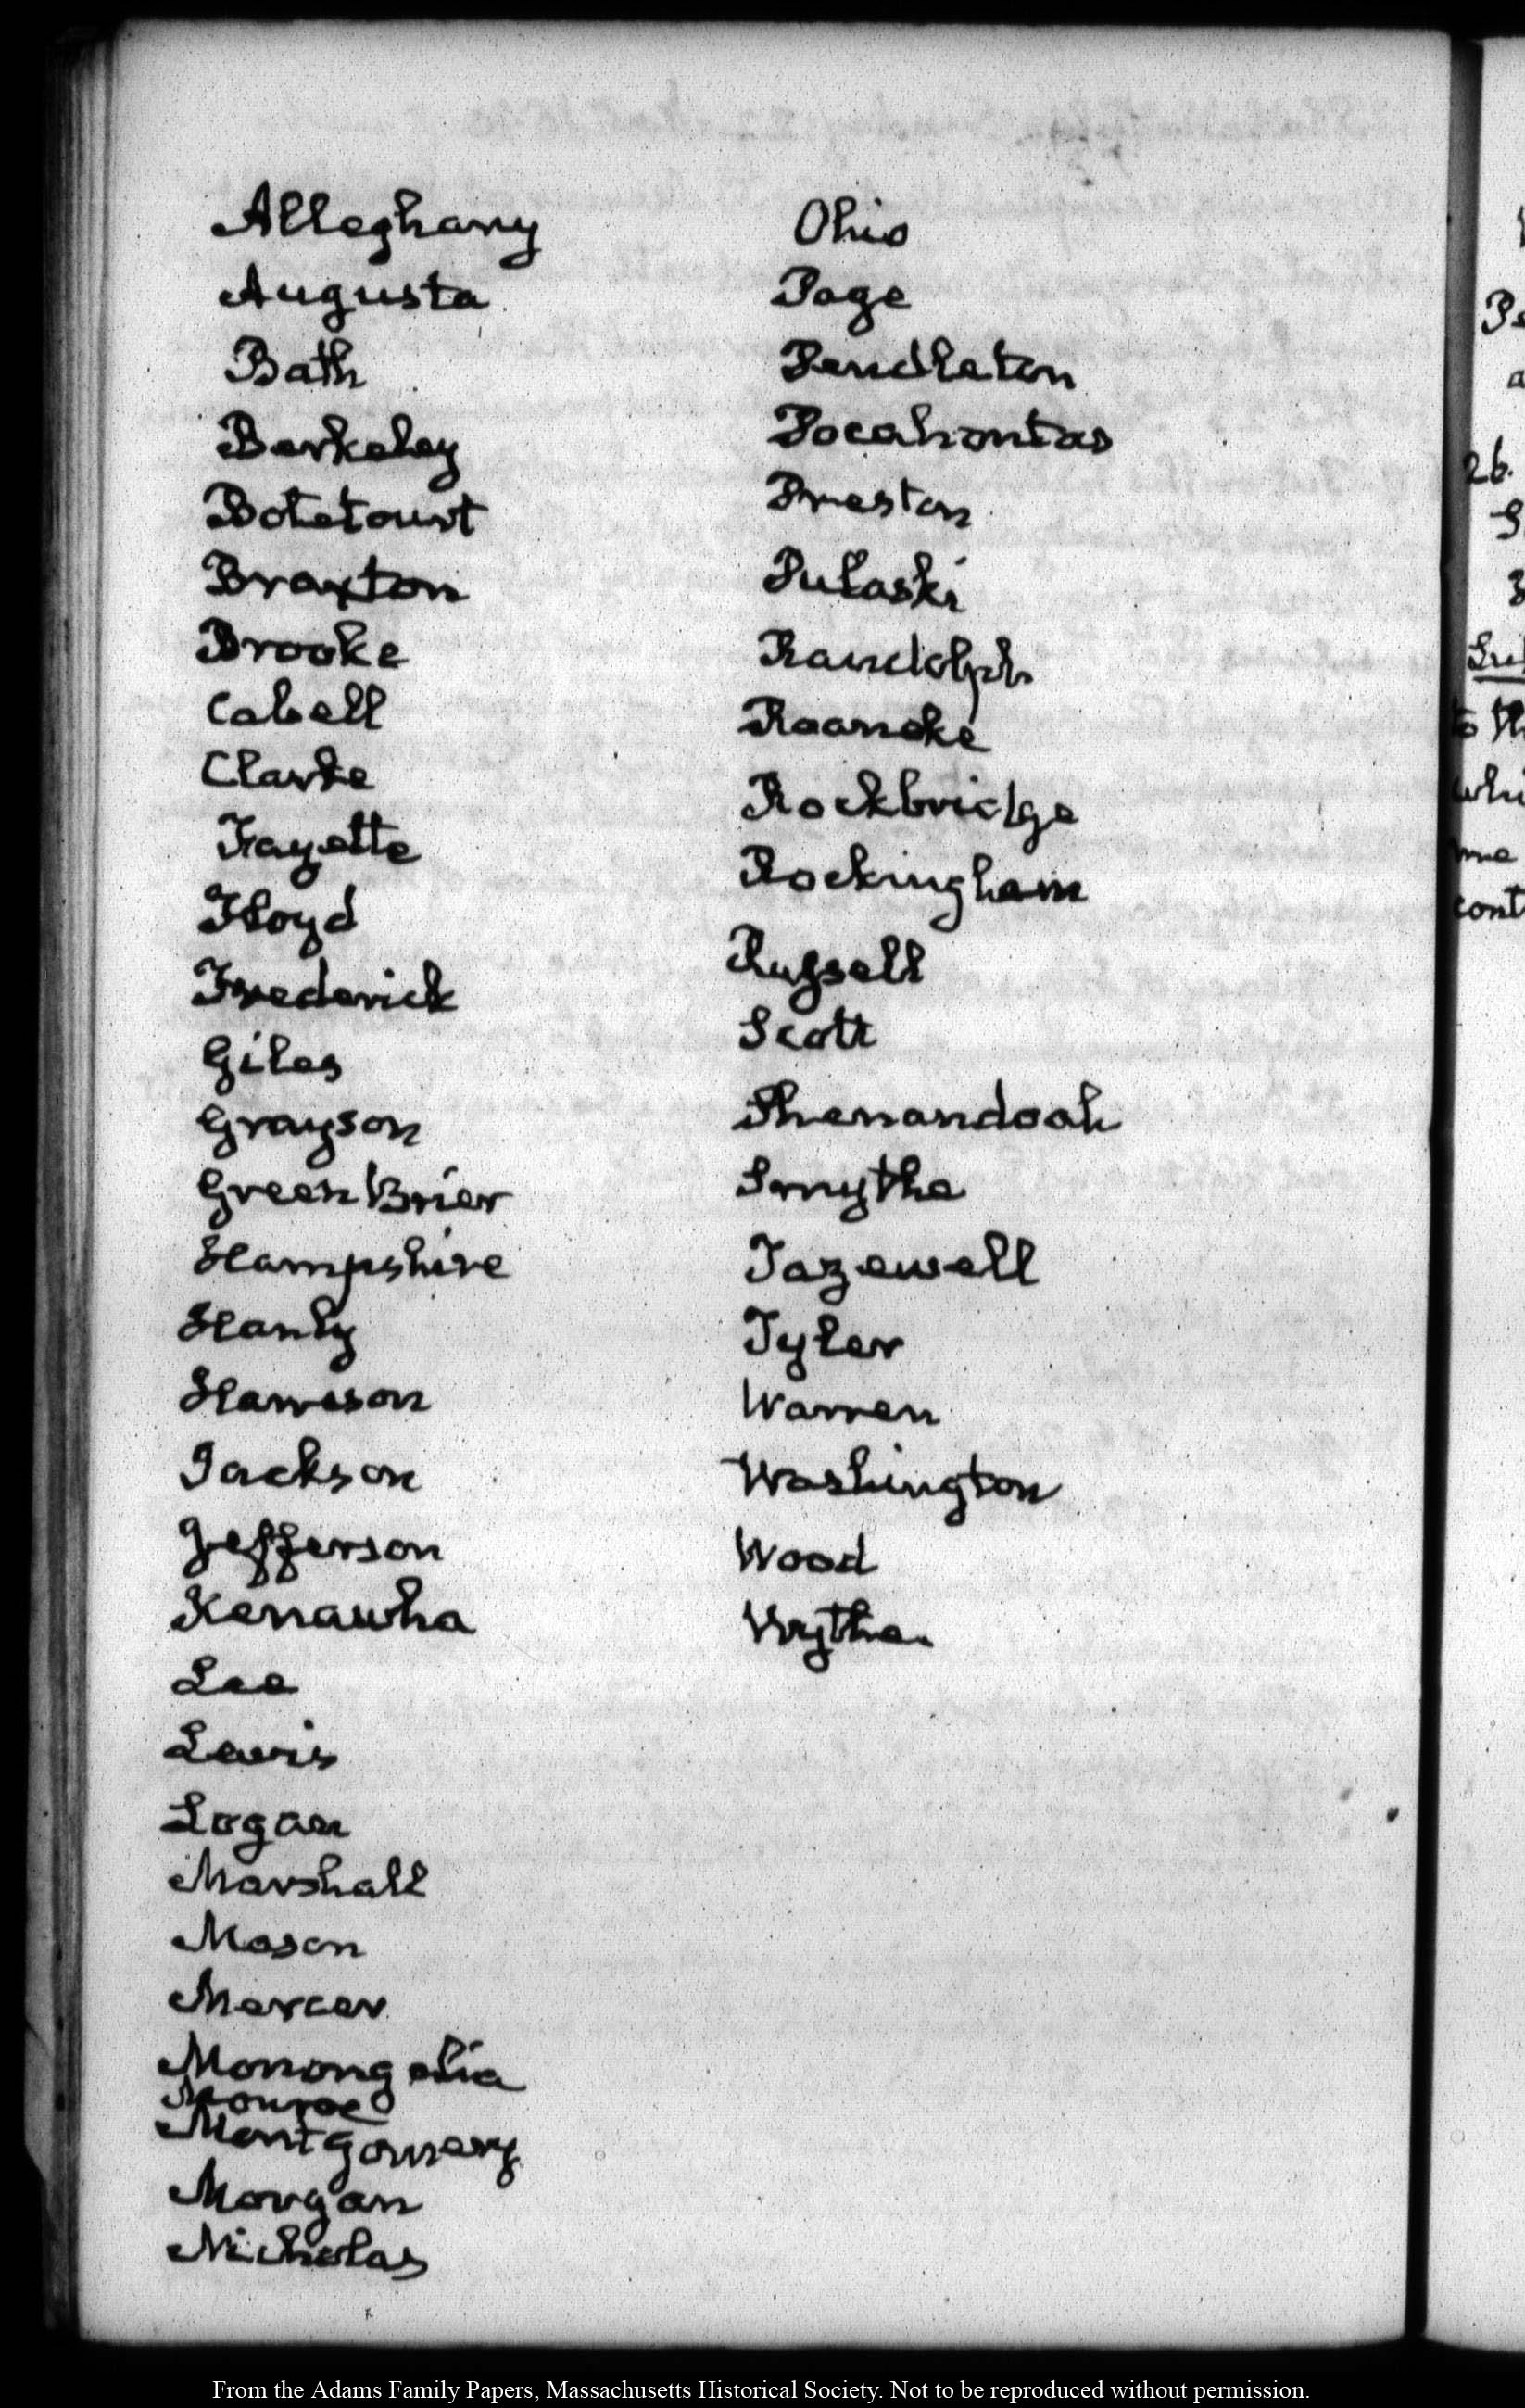 Alleghany
Augusta
Bath
Berkeley
Botetourt
Braxton
Brooke
Cabell
Clarke
Fayette
Floyd
Frederick
Giles
Grayson
Green Brier
Hampshire
Hardy
Harrison
Jackson
Jefferson
Kenawha
Lee
Lewis
Logan
Marshall
Mason
Mercer
Monongalia
Monroe
Montgomery
Morgan
Nicholas
Ohio
Page
Pendleton
Pocahontas
Preston
Pulaski
Randolph
Roanoke
Rockbridge
Rockingham
Russell
Scott
Shenandoah
Smythe
Tazewell
Tyler
Warren
Washington
Wood
Wythe.
26.
to th
whi
me
cont
From the Adams Family Papers, Massachusetts Historical Society. Not to be reproduced without permission.